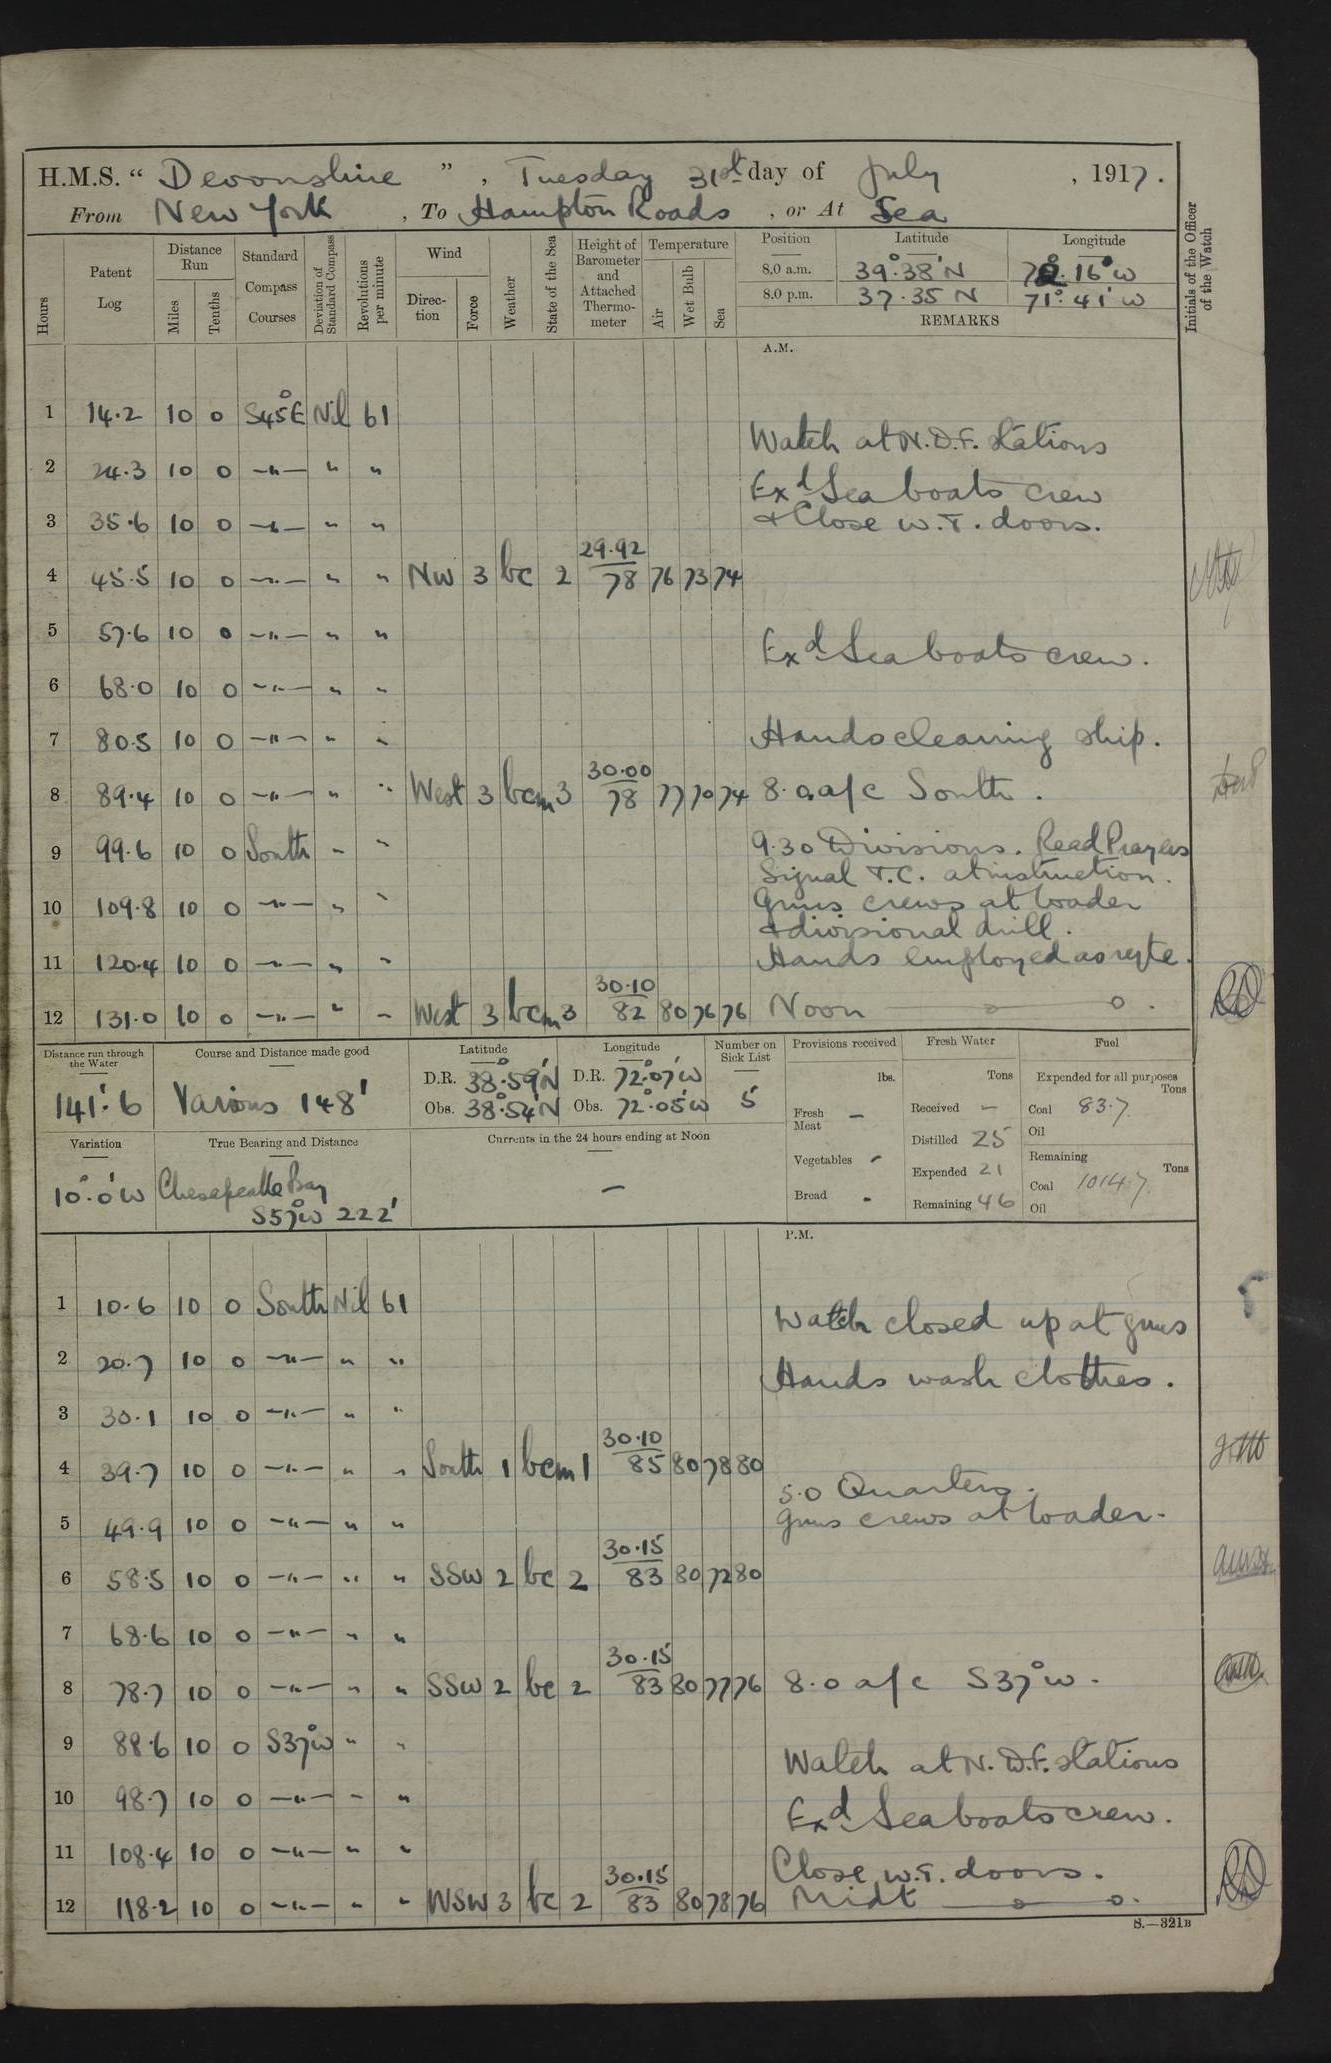 H.M.S. “ Devonshire ” , Tuesday 31st day of July , 1917.
From New York , To Hampton Roads , or At Sea
Hours
Patent Log
Distance Run
Miles
Tenths
Standard Compass Courses
Deviation of Standard Compass
Revolutions per minute
Wind
Direction
Force
Weather
State of the Sea
Height of Barometer and Attached Thermometer
Temperature
Air
Wet Bulb
Sea
Position Latitude Longitude
8.0 a.m. 39°.38' N 72°.16' W
8.0 p.m. 37.35 N 71°.41' W
REMARKS
Initials of the Officer of the Watch
A.M.
1 14.2 10 0 S45°E Nil 61
Watch at N.D.F. stations
2 24.3 10 0 —"— " "
Exd Sea boats crew
3 35.6 10 0 —"— " " & Close W.T. doors.
4 45.5 10 0 —"— " " NW 3 bc 2 29.92/78 76 73 74
5 57.6 10 0 —"— " "
Exd Sea boats crew.
6 68.0 10 0 —"— " "
7 80.5 10 0 —"— " " Hands cleaning ship.
8 89.4 10 0 —"— " " West 3 bcm 3 30.00/78 77 70 74 8.0 a/c South.
9 99.6 10 0 South " " 9.30 Divisions. Read Prayers
Signal T.C. at instruction.
10 109.8 10 0 —"— " " Guns crews at loader
& divisional drill.
11 120.4 10 0 —"— " " Hands employed as reqte.
12 131.0 10 0 —"— " " West 3 bcm 3 30.10/82 80 76 76 Noon
Distance run through the Water
141'.6
Course and Distance made good
Various 148'
Latitude
D.R. 38°.59'N
Obs. 38°.54'N
Longitude
D.R. 72°.07'W
Obs. 72°.05'W
Number on Sick List
5
Provisions received
lbs.
Fresh Meat —
Vegetables -
Bread -
Fresh Water
Tons
Received —
Distilled 25
Expended 21
Remaining 46
Fuel
Expended for all purposes
Tons
Coal 83.7
Oil
Remaining
Tons
Coal 1014.7
Oil
Variation
10°.0' W
True Bearing and Distance
Chesapeake Bay
S57°W 222'
Currents in the 24 hours ending at Noon
—
P.M.
1 10.6 10 0 South Nil 61
Watch closed up at guns
2 20.7 10 0 —"— " "
Hands wash clothes.
3 30.1 10 0 —"— " "
4 39.7 10 0 —"— " " South 1 bcm 1 30.10/85 80 78 80
5.0 Quarters.
5 49.9 10 0 —"— " " Guns crews at loader.
6 58.5 10 0 —"— " " SSW 2 bc 2 30.15/83 80 72 80
7 68.6 10 0 —"— " "
8 78.7 10 0 —"— " " SSW 2 bc 2 30.15/83 80 77 76 8.0 a/c S37°W.
9 88.6 10 0 S37°W " "
Watch at N.D.F. stations
10 98.7 10 0 —"— " "
Exd Sea boats crew.
11 108.4 10 0 —"— " "
Close W.T. doors.
12 118.2 10 0 —"— " " WSW 3 bc 2 30.15/83 80 78 76 Midt
S.—321B